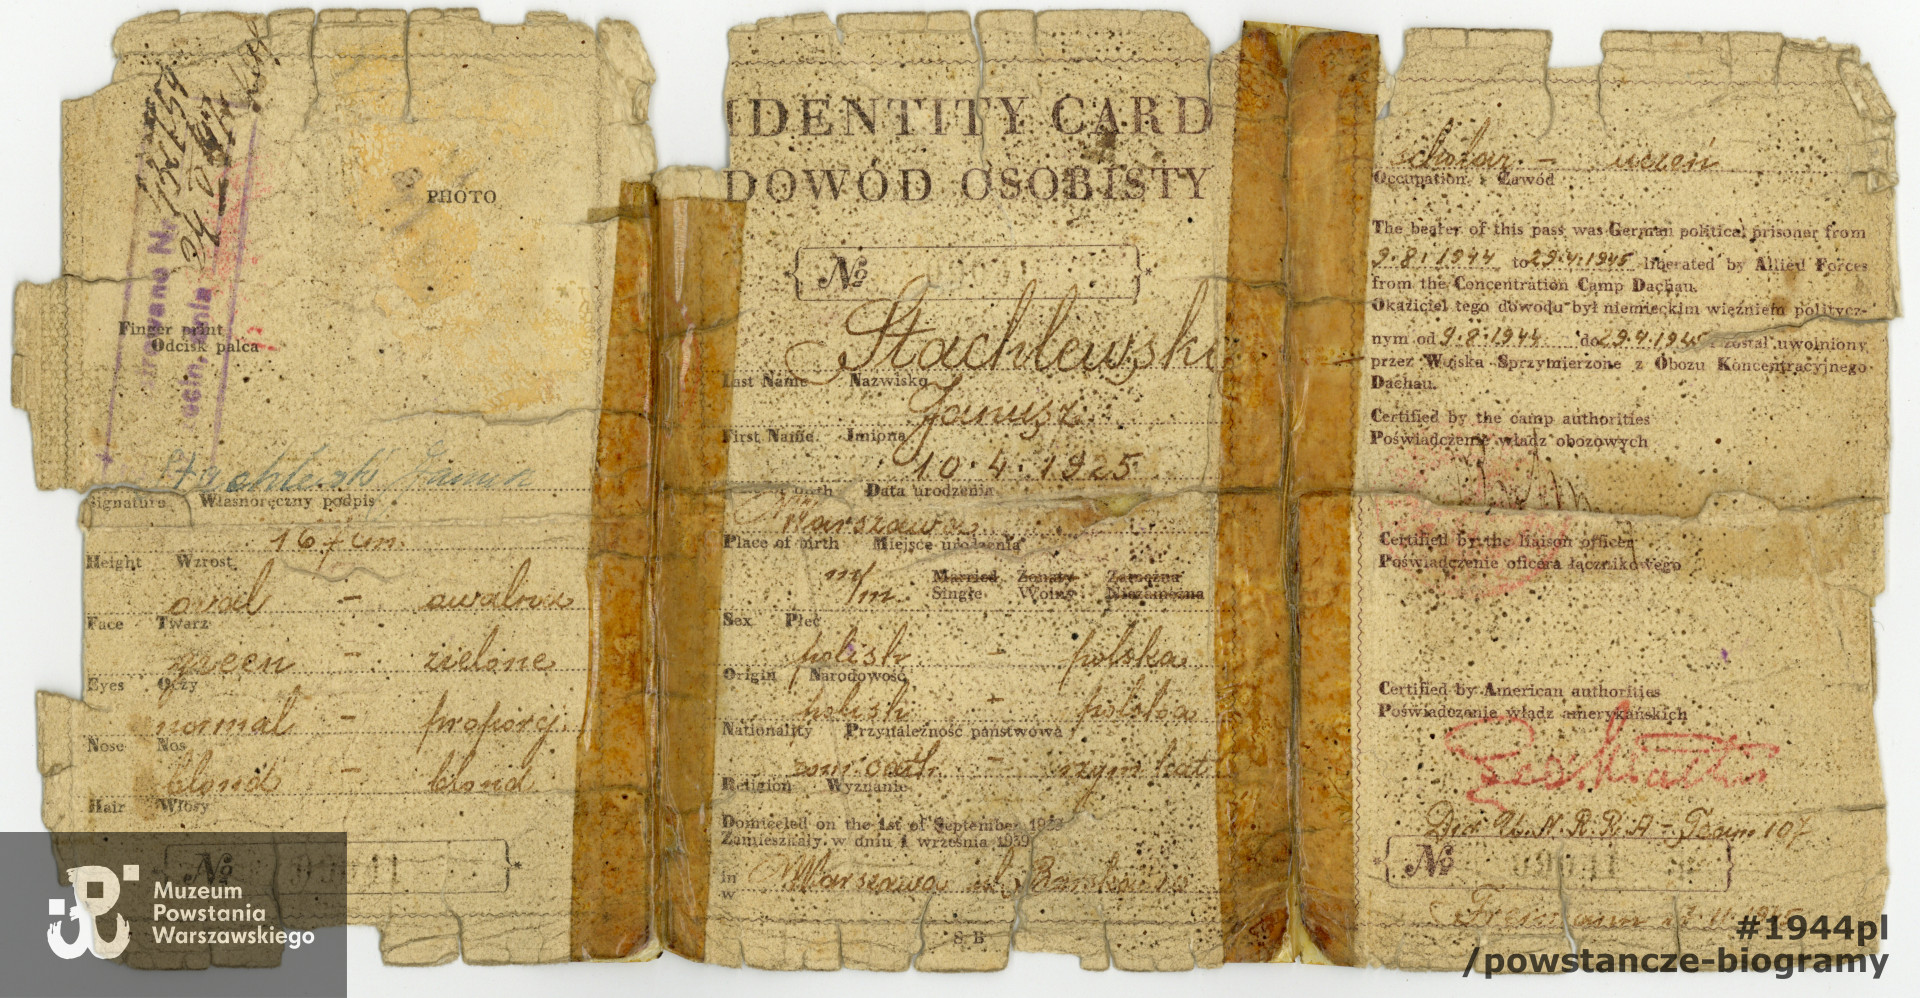 PHOTO
Finger print
Odcisk palca
Signature Własnoręczny podpis
167 cm.
Height Wzrost
oval – owalna
Face Twarz
green – zielone
Eyes Oczy
normal – proporcj.
Nose Nos
blond – blond
Hair Włosy
No
IDENTITY CARD
DOWÓD OSOBISTY
No
Stachlewski
Last Name Nazwisko
Janusz
First Name Imiona
10.4.1925
birth Data urodzenia
Warszawa
Place of birth Miejsce urodzenia
m/m. Married Żonaty Zamężna
Single Wolny Niezamężna
Sex Płeć
polish – polska
Origin Narodowość
polish – polska
Nationality Przynależność państwowa
rom cath – rzym kat
Religion Wyznanie
Domiceled on the 1st of September 1939
Zamieszkały w dniu 1 września 1939
in Warszawa ul.
w
S. B
scholar – uczeń
Occupation Zawód
The bearer of this pass was German political prisoner from
9.8.1944 to 29.4.1945 liberated by Allied Forces
from the Concentration Camp Dachau.
Okaziciel tego dowodu był niemieckim więźniem politycz-
nym od 9.8.1944 do 29.4.1945 i został uwolniony
przez Wojska Sprzymierzone z Obozu Koncentracyjnego
Dachau.
Certified by the camp authorities
Poświadczenie władz obozowych
Certified by the liaison officer
Poświadczenie oficera łącznikowego
Certified by American authorities
Poświadczenie władz amerykańskich
U.N.R.R.A – Team 107
No
Muzeum
Powstania
Warszawskiego
#1944pl
/powstancze-biogramy